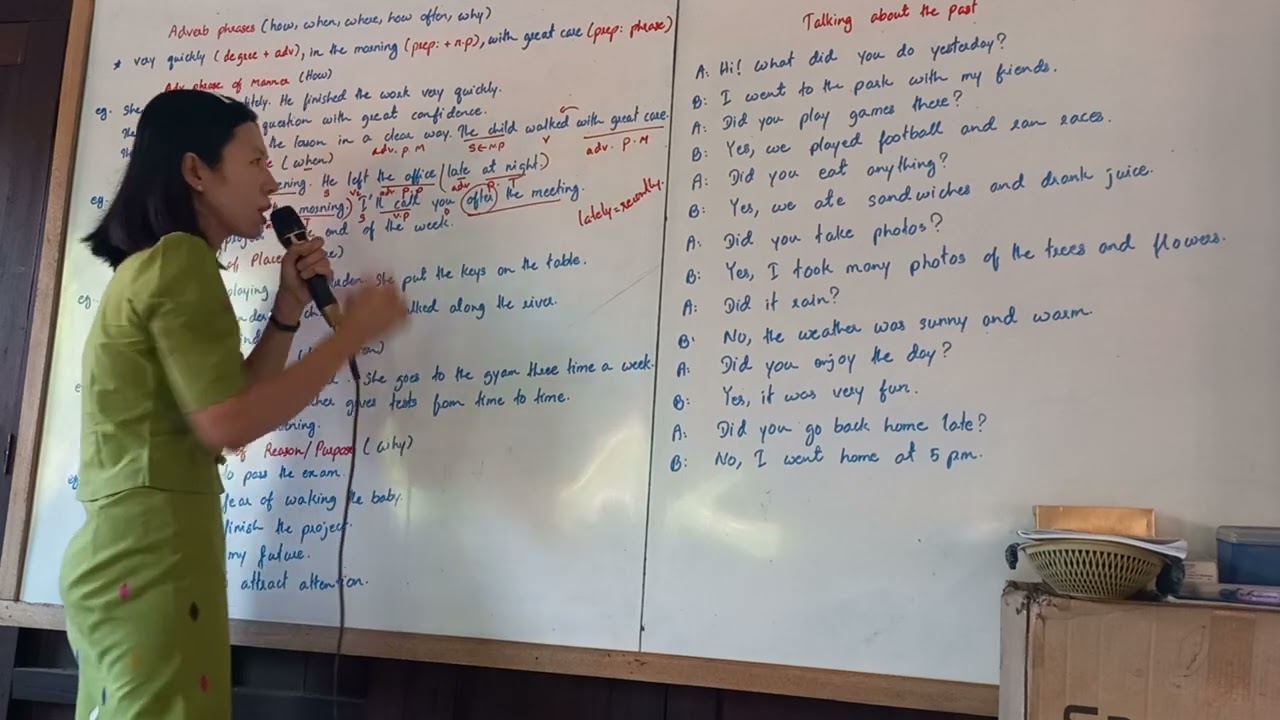 Adverb phrases (how, when, where, how often, why)
* very quickly (degree + adv), in the morning (prep: + n.p), with great care (prep: phrase)
Adv phrase of Manner (How)
eg. She litely. He finished the work very quickly.
question with great confidence.
the lawn in a clear way. The child walked with great care.
adv. p. M S←N.P V adv. P. M
(when)
ening. He left the office (late at night.)
S V adv P. T
eg. morning,) I'll call you (after) the meeting.
S v.p O
lately = recently.
end of the week.
of Place
playing She put the keys on the table.
eg. lked along the river.
She goes to the gyam three time a week.
gives tests from time to time.
ning.
of Reason/Purpose (why)
eg. to pass the exam.
fear of waking the baby.
finish the project.
my future.
attract attention.
Talking about the past
A: Hi! What did you do yesterday?
B: I went to the park with my friends.
A: Did you play games there?
B: Yes, we played football and ran races.
A: Did you eat anything?
B: Yes, we ate sandwiches and drank juice.
A: Did you take photos?
B: Yes, I took many photos of the trees and flowers.
A: Did it rain?
B: No, the weather was sunny and warm.
A: Did you enjoy the day?
B: Yes, it was very fun.
A: Did you go back home late?
B: No, I went home at 5 pm.